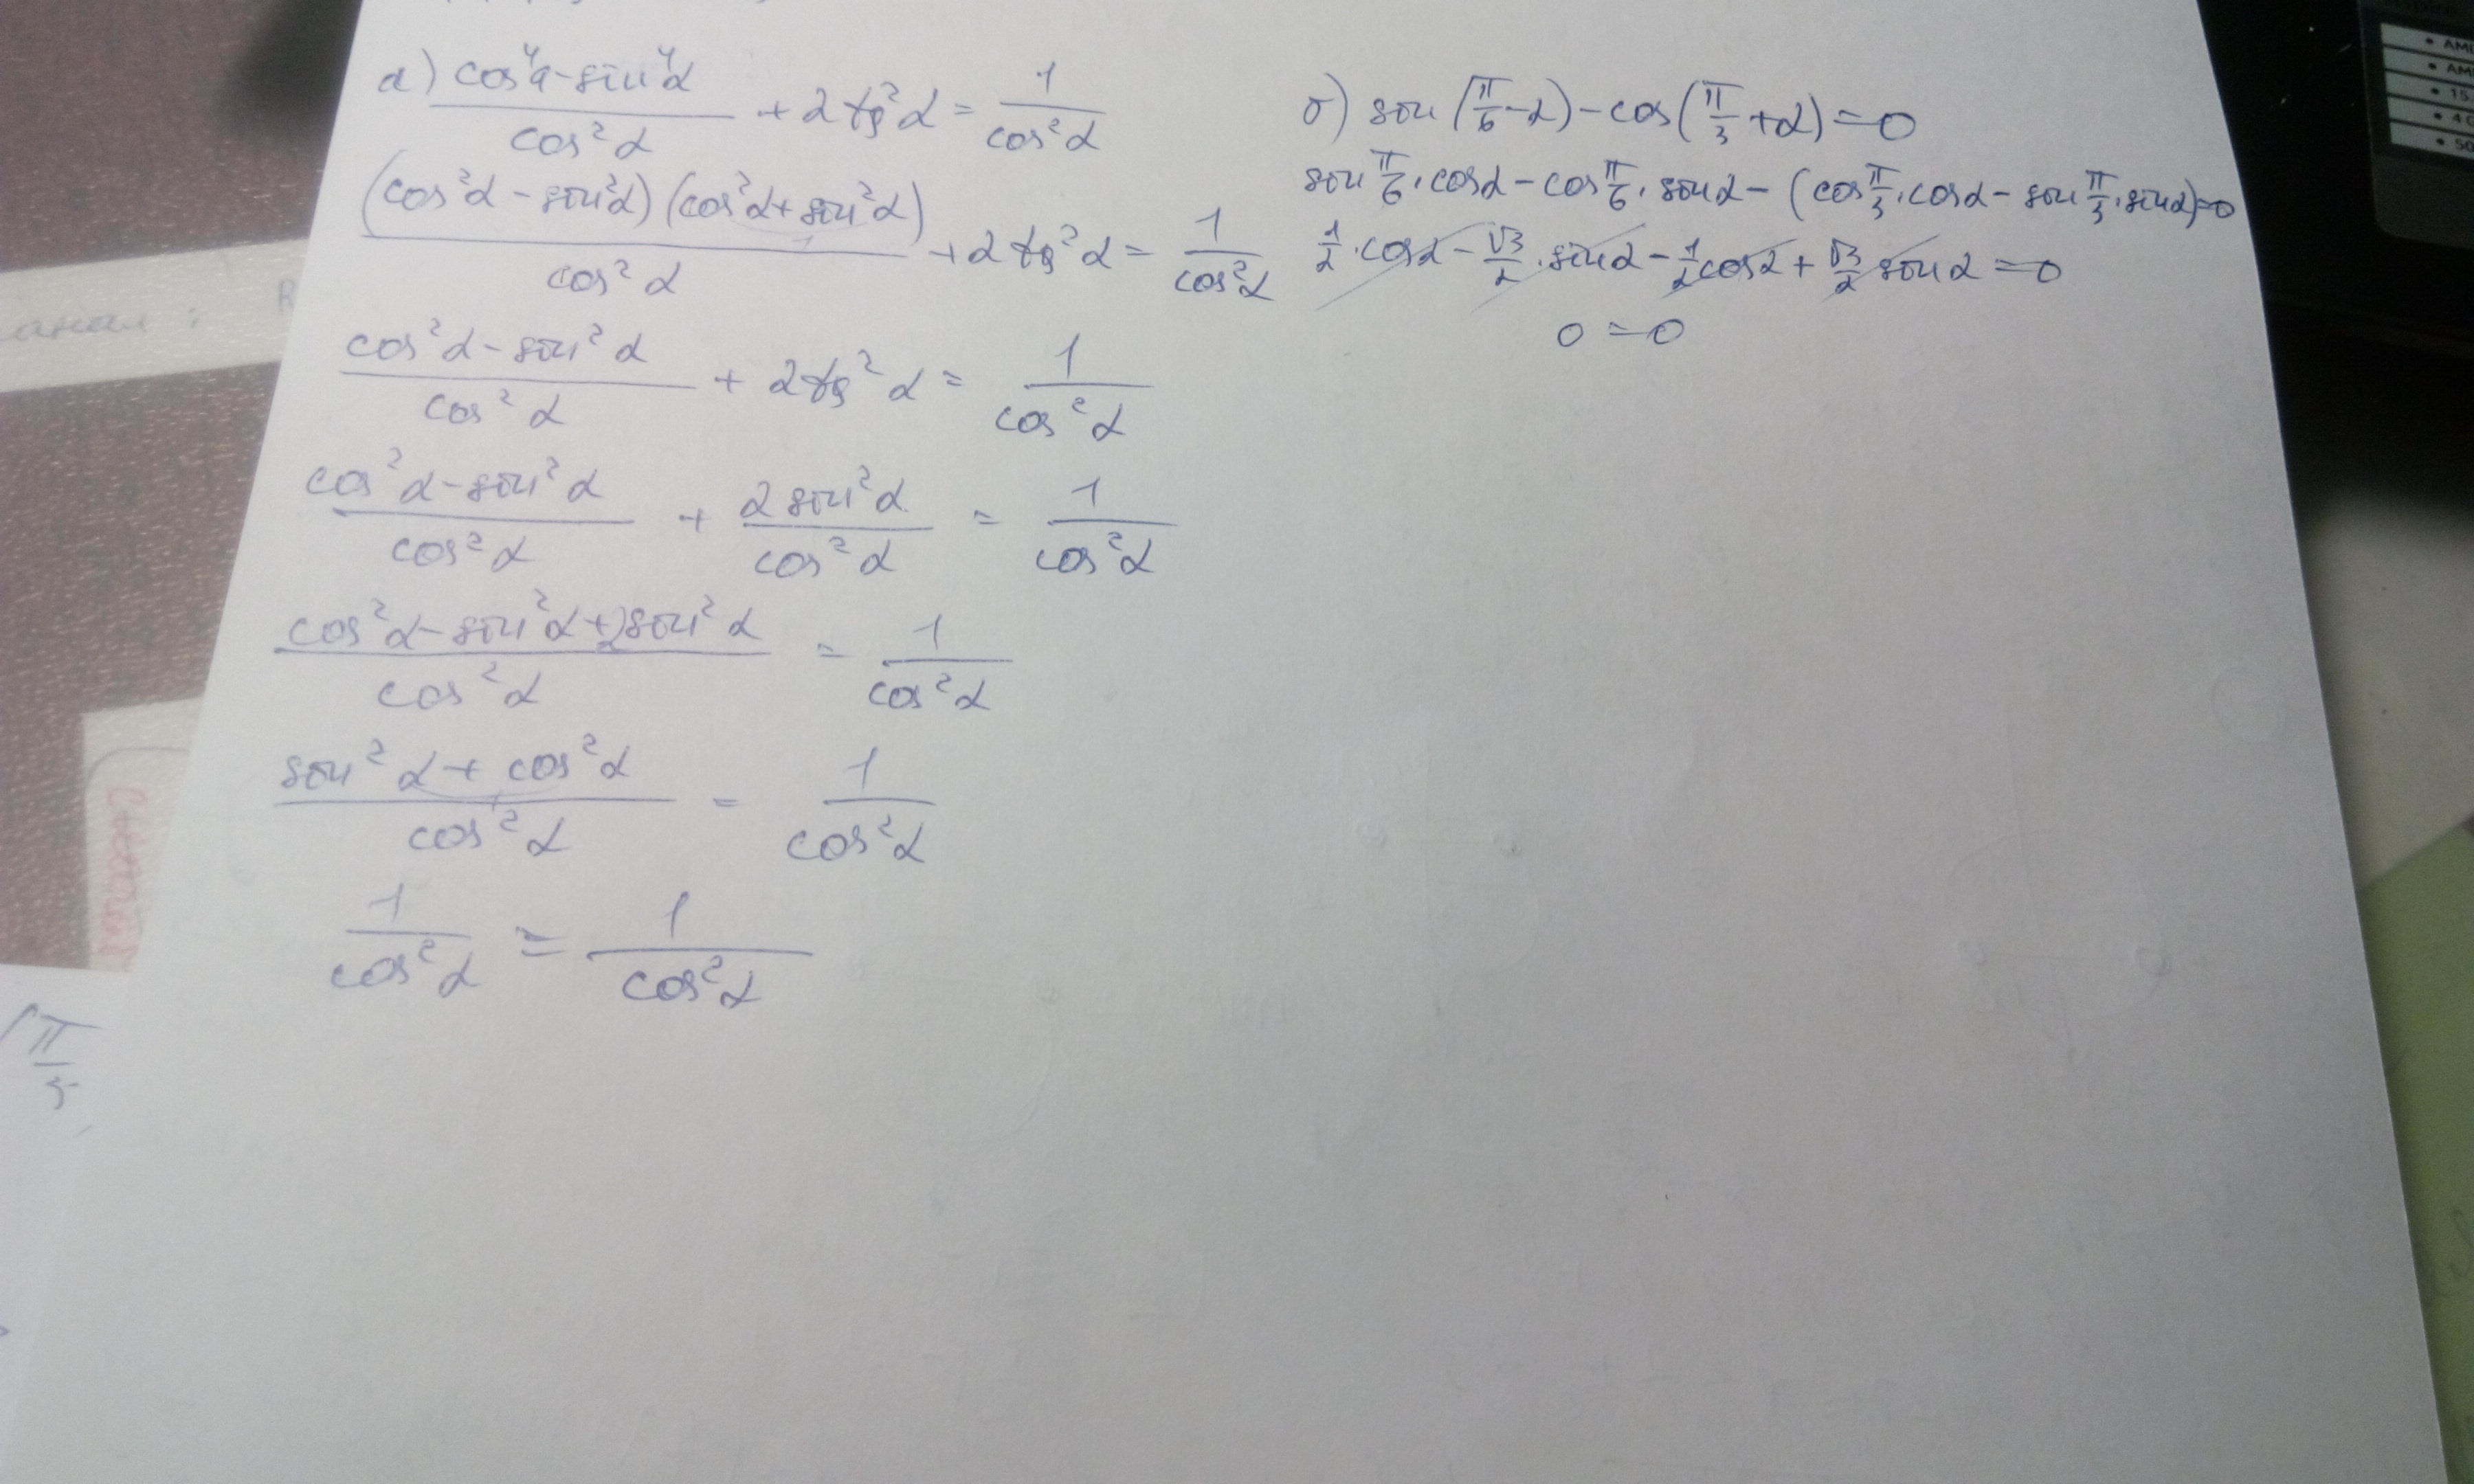 а) (cos⁴α - sin⁴α)/(cos²α) + 2tg²α = 1/(cos²α)
((cos²α - sin²α)(cos²α + sin²α))/(cos²α) + 2tg²α = 1/(cos²α)
1
(cos²α - sin²α)/(cos²α) + 2tg²α = 1/(cos²α)
(cos²α - sin²α)/(cos²α) + (2sin²α)/(cos²α) = 1/(cos²α)
(cos²α - sin²α + 2sin²α)/(cos²α) = 1/(cos²α)
(sin²α + cos²α)/(cos²α) = 1/(cos²α)
1
1/(cos²α) = 1/(cos²α)
б) sin(π/6 - α) - cos(π/3 + α) = 0
sin π/6 · cosα - cos π/6 · sinα - (cos π/3 · cosα - sin π/3 · sinα) = 0
1/2 · cosα - √3/2 · sinα - 1/2 cosα + √3/2 sinα = 0
0 = 0
анал :
π/3
AMD